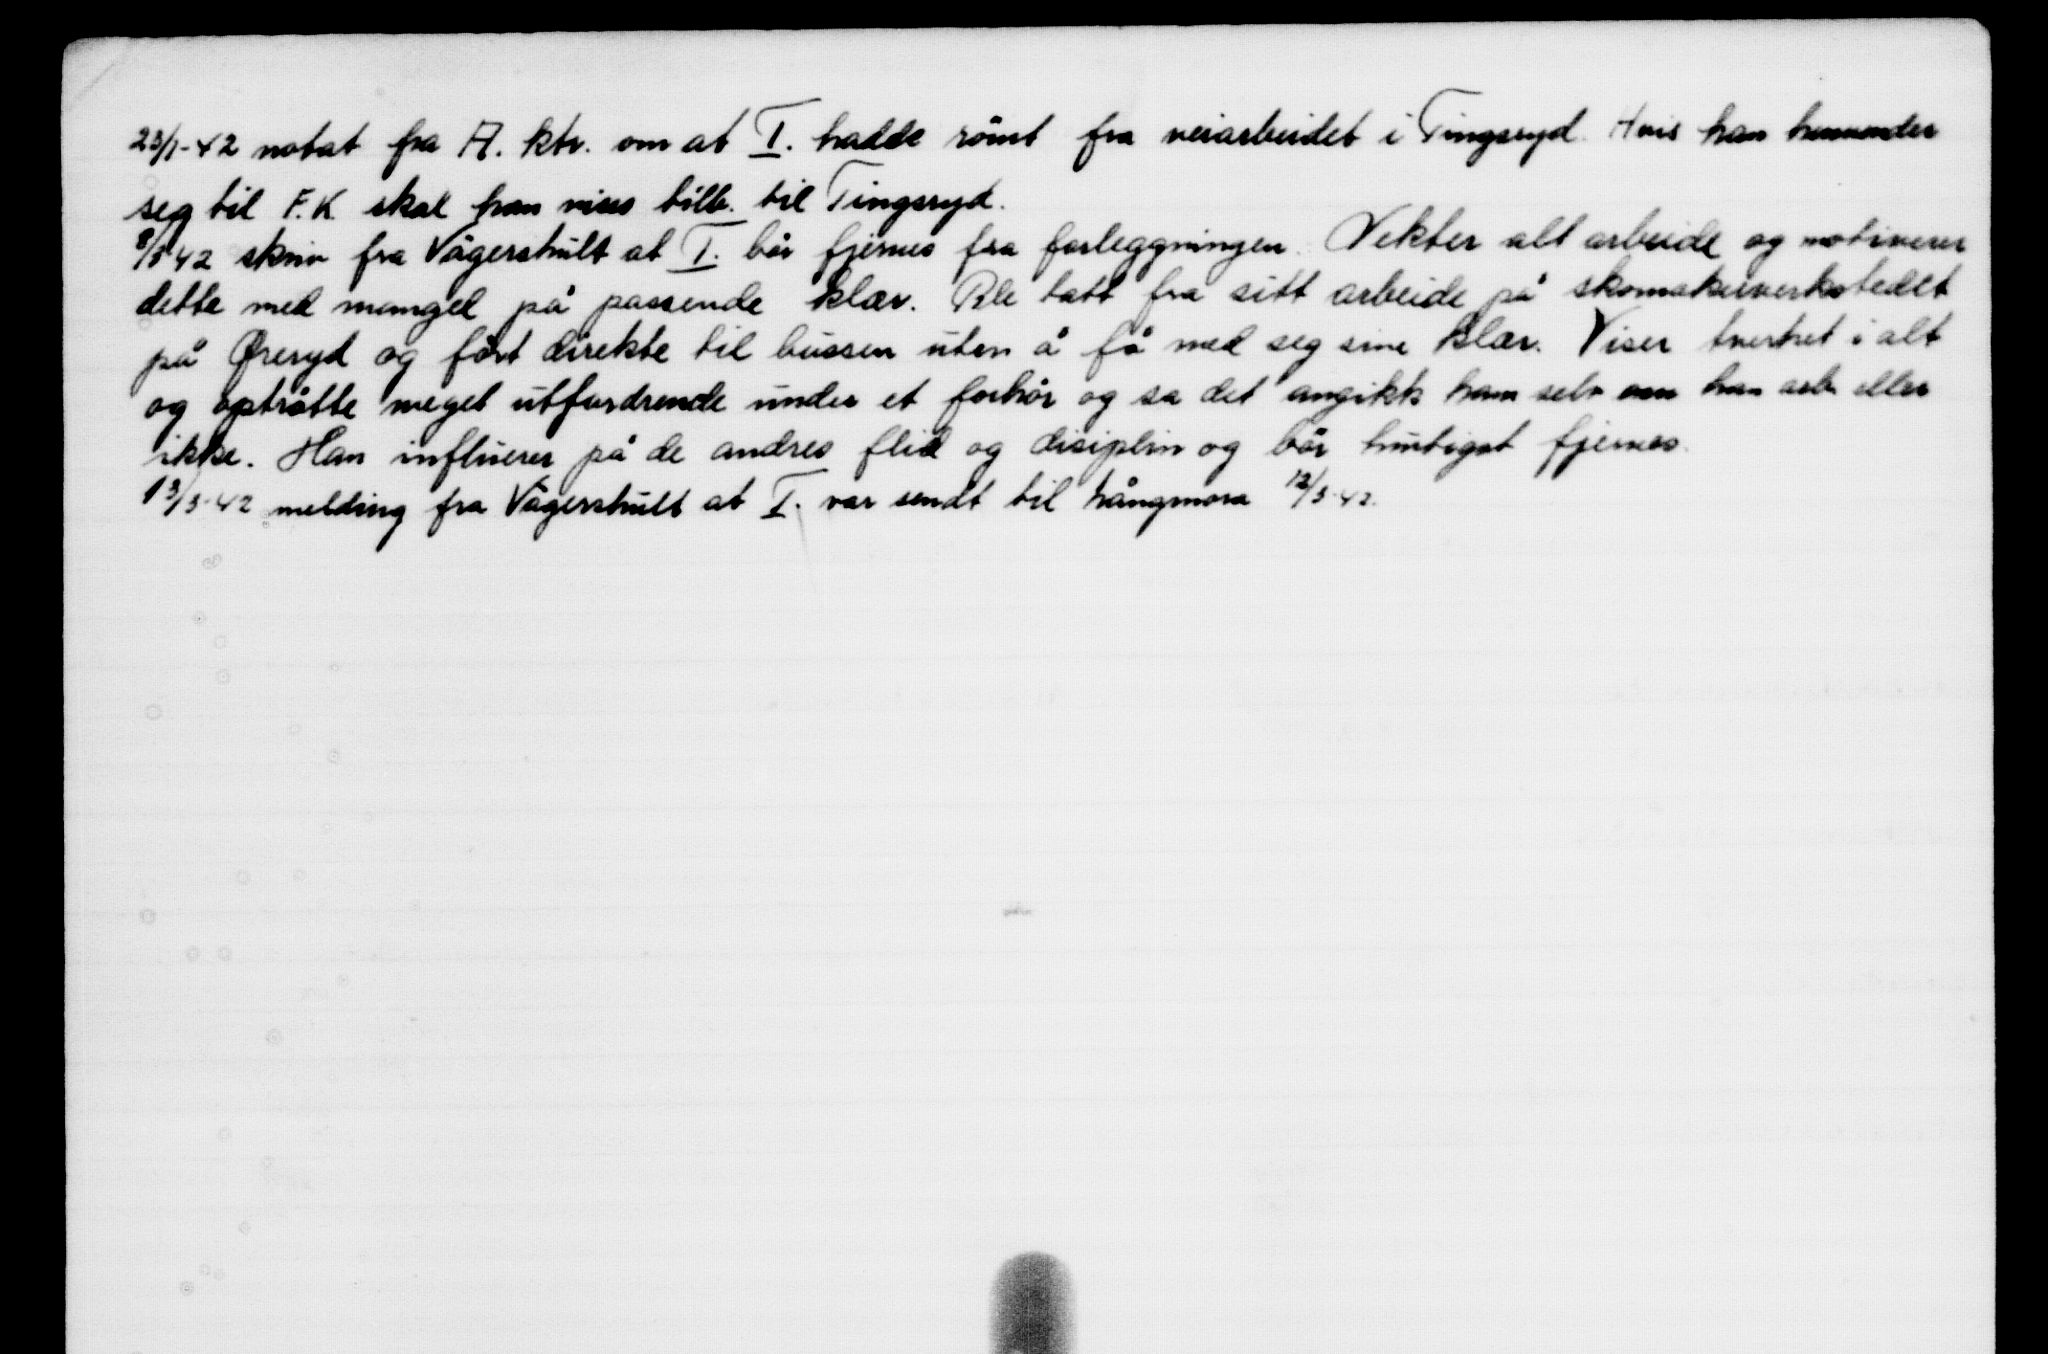 23/1-42 notat fra A. ktr. om at I. hadde römt fra veiarbeidet i Tingsryd. Hvis han henvender
seg til F.K. skal han vises tilb. til Tingsryd.
8/3-42 skriv fra Vägershult at I. bör fjernes fra forleggningen. Nekter alt arbeide og motiverer
dette med mangel på passende klær. Ble tatt fra sitt arbeide på skomakerverkstedet
på Øreryd og fört direkte til bussen uten å få med seg sine klær. Viser tverhet i alt
og optrådte meget utfordrende under et forhör og sa det angikk ham selv om han arb. eller
ikke. Han influerer på de andres flid og disiplin og bör hurtigst fjernes.
13/3-42 melding fra Vägershult at I. var sendt til Långmora 12/3-42.